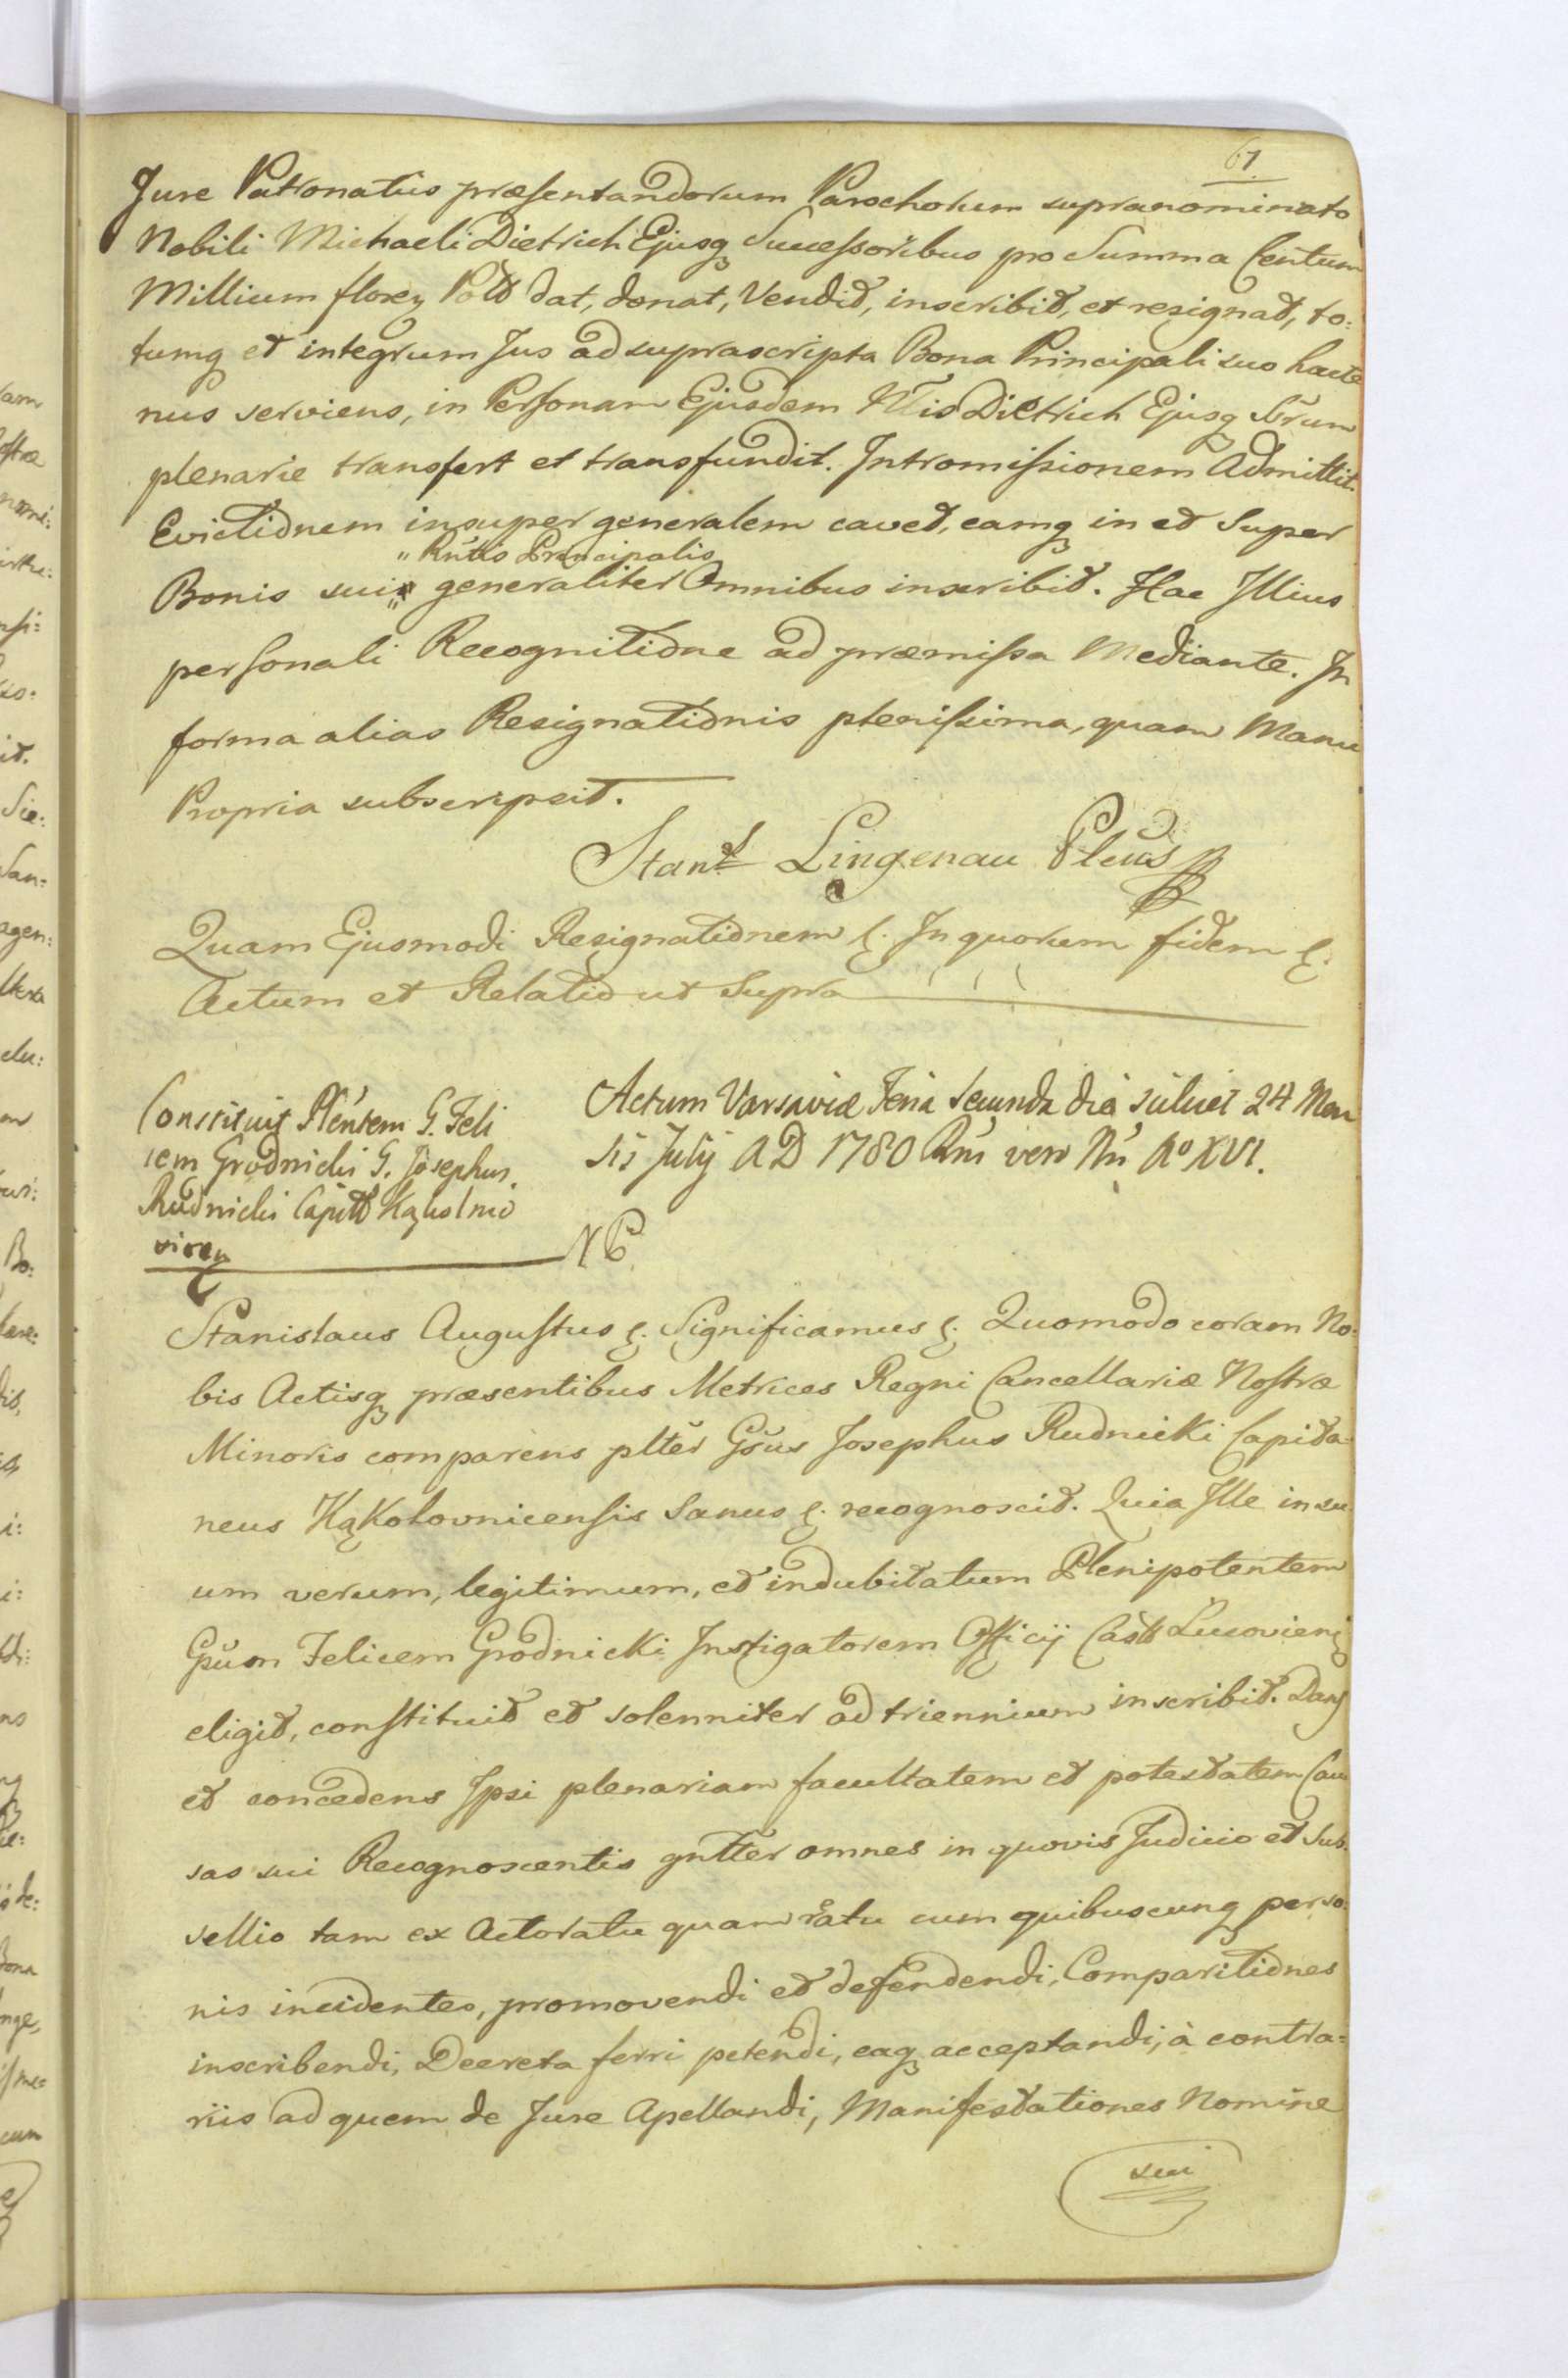 61.
Jure Patronatus præsentandorum Parochorum supranominato
Nobili Michaeli Dietrich Ejusq Successoribus pro Summa Centum
Millium floren Poltt dat, donat, Vendit, inscribit, et resignat, to:
tumq et integrum Jus ad suprascripta Bona Principali suo hacte
nus serviens, in Personam Ejusdem Nlis Dietrich Ejusq Srum
plenarie transfert et transfundit. Intromissionem Admittit.
Evictionem insuper generalem cavet, eamq in et Super
" Rntis Principalis
Bonis sui " generaliter Omnibus inscribit. Hac Illius
personali Recognitione ad præmissa Mediante. In
forma alias Resignationis plenissima, quam Manu
Propria subscripsit.
Stans Lingenau Plens
Quam Ejusmodi Resignationem &. In quorum fidem &.
Actum et Relatio ut Supra
Constituit Plentem G. Feli
cem Grodnicki G. Josephus
Rudnicki Capitt Kąkolno
vicen
Actum Varsaviæ Feria Secunda die silicet 24 Men
sis July A D 1780 Rni vero Nri Ao XVI.
N 6
Stanislaus Augustus &. Significamus &. Quomodo coram No:
bis Actisq præsentibus Metrices Regni Cancellariæ Nostræ
Minoris comparens plter Gsus Josephus Rudnicki Capita
neus Kąkolovnicensis Sanus &. recognoscit. Quia Ille in su
um verum, legitimum, et indubitatum Plenipotentem
Gsum Felicem Grodnicki Instigatorem Officij Castr Lucovien
eligit, constituit et solenniter ad triennium inscribit. Dans
et concedens Ipsi plenariam facultatem et potestatem Cau
sas sui Recognoscentis gnlter omnes in quovis Judicio et Sub:
sellio tam ex Actoratu quam ratu cum quibuscunq perso:
nis incidentes, promovendi et defendendi, Comparitiones
inscribendi, Decreta ferri petendi, eaq acceptandi, à contra=
riis ad quem de Jure Apellandi, Manifestationes Nomine
sui